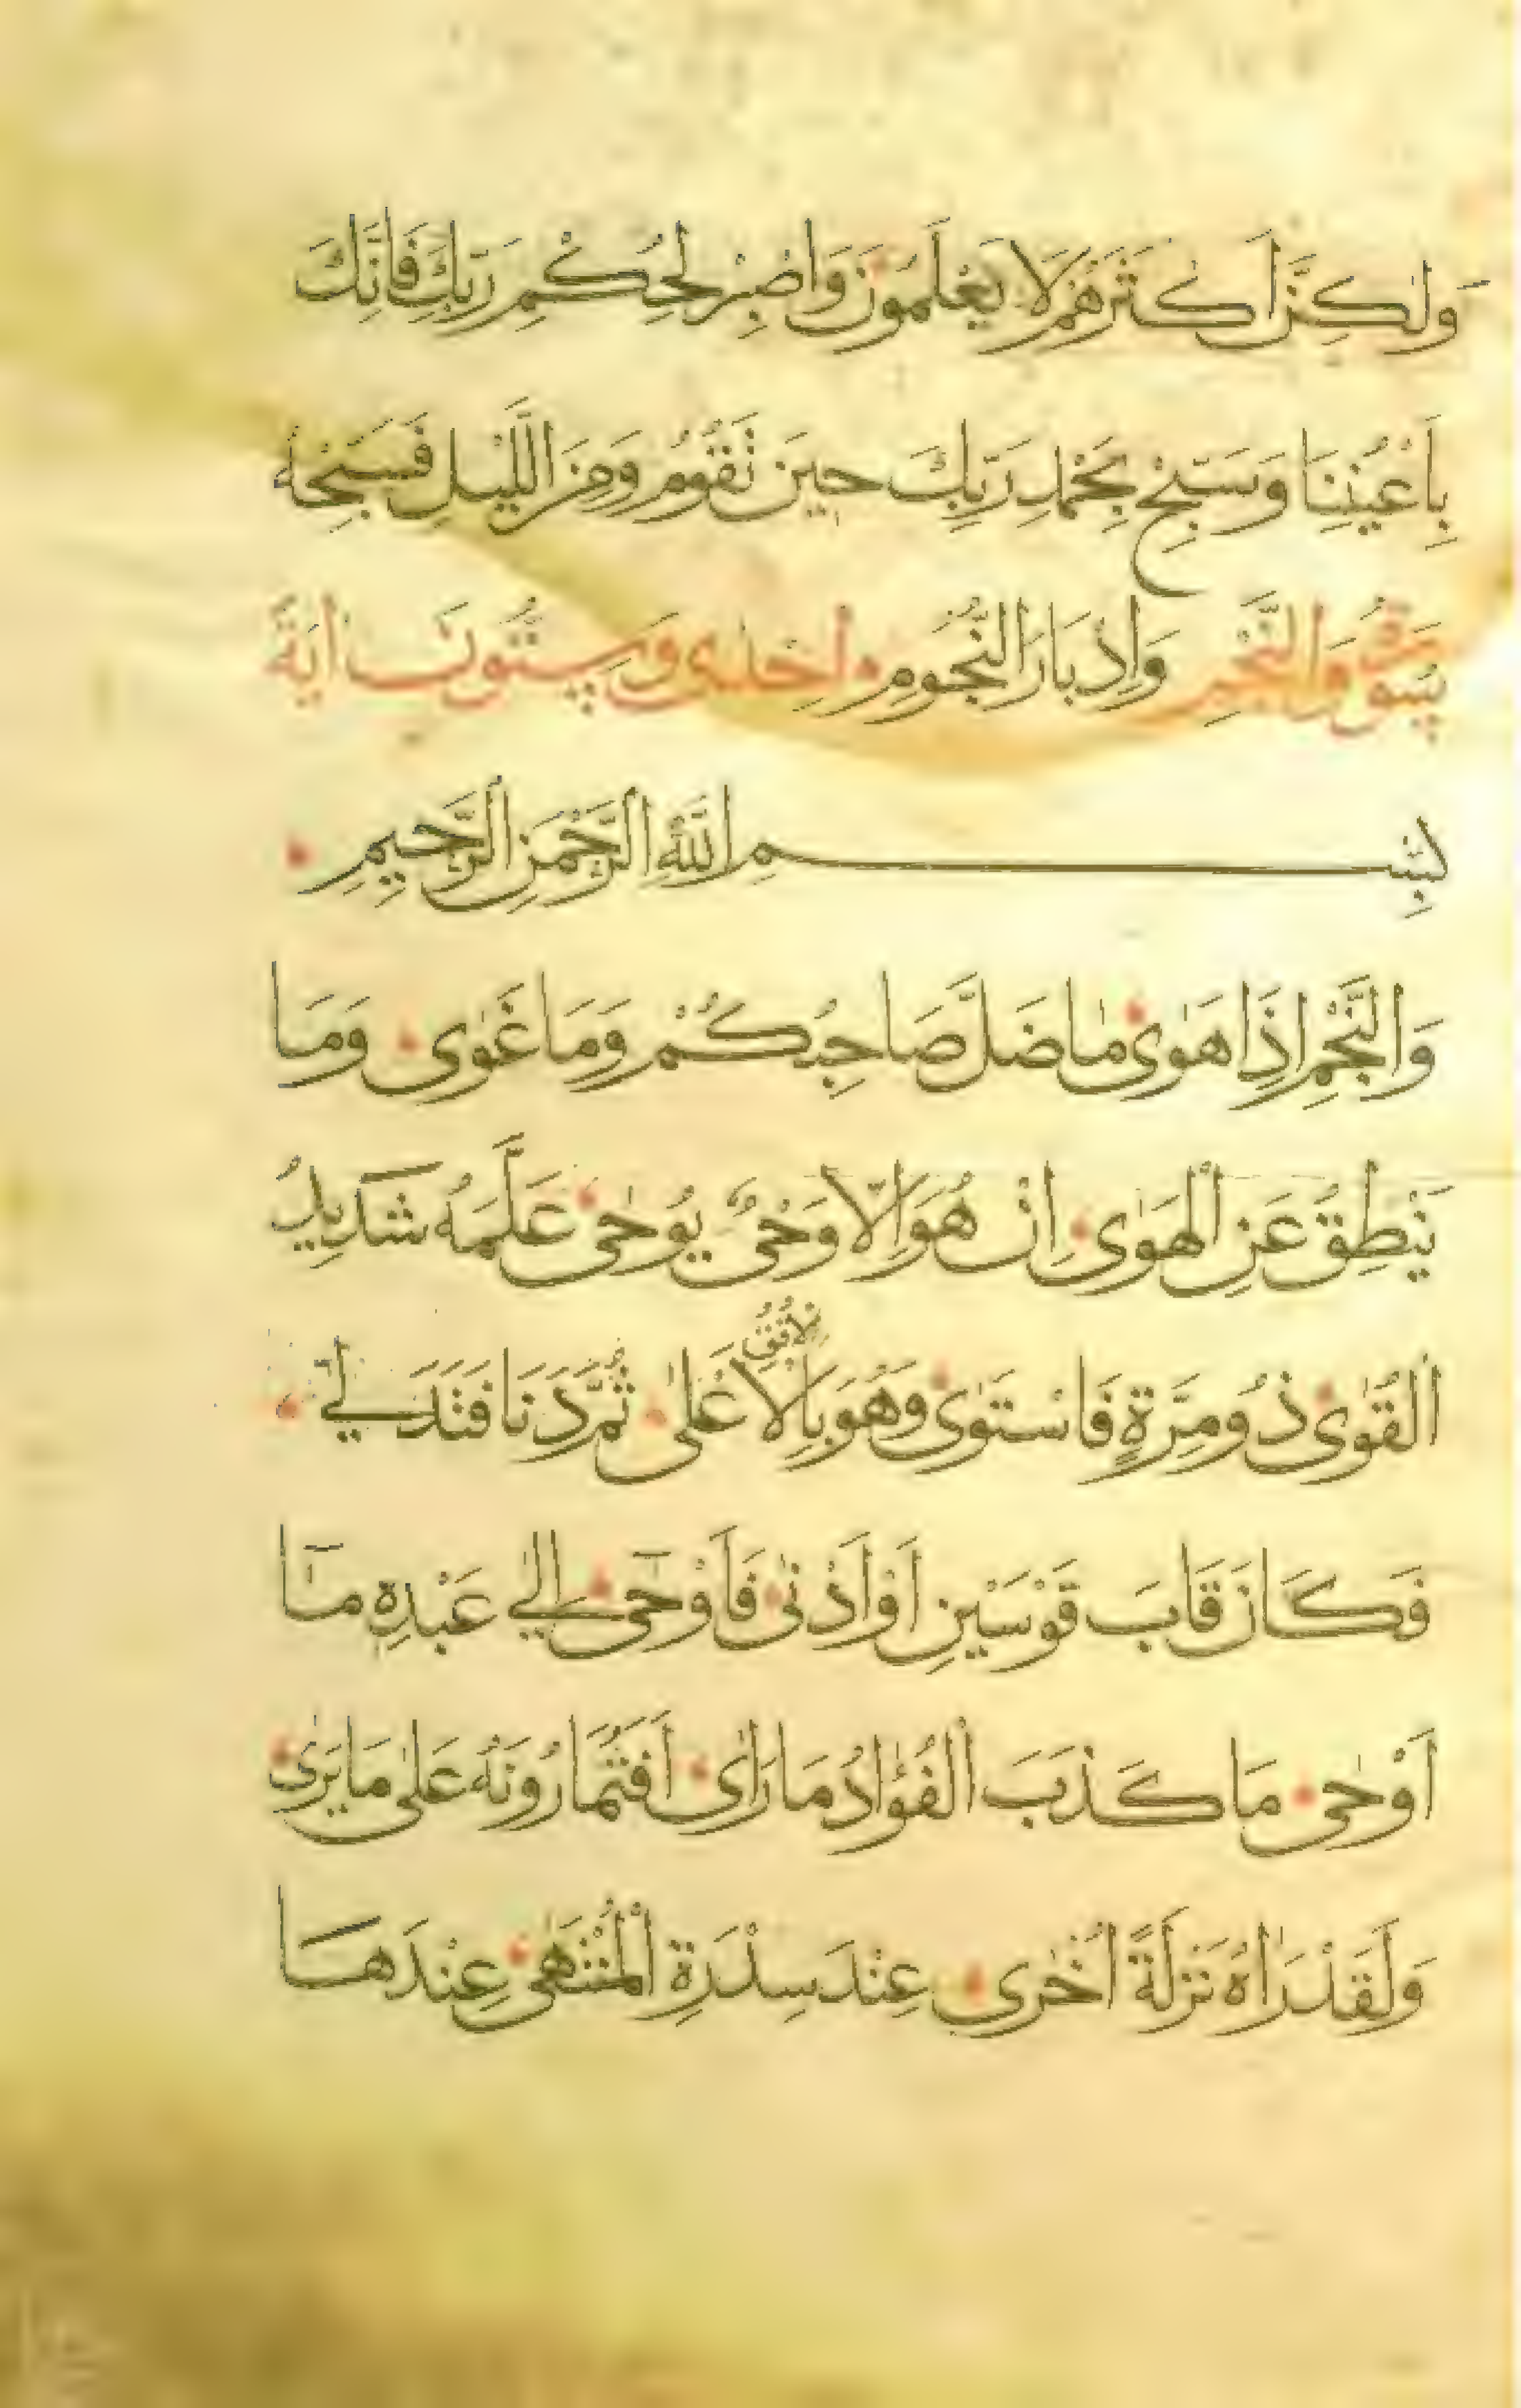 وَلٰكِنَّ اَكْثَرَهُمْ لَا يَعْلَمُونَ وَاصْبِرْ لِحُكْمِ رَبِّكَ فَاِنَّكَ
بِاَعْيُنِنَا وَسَبِّحْ بِحَمْدِ رَبِّكَ حِينَ تَقُومُ وَمِنَ اللَّيْلِ فَسَبِّحْهُ
سُورَةُ وَالنَّجْمِ وَاِدْبَارَ النُّجُومِ اِحْدٰى وَسِتُّونَ اٰيَةً
بِسْمِ اللّٰهِ الرَّحْمٰنِ الرَّحِيمِ
وَالنَّجْمِ اِذَا هَوٰى مَا ضَلَّ صَاحِبُكُمْ وَمَا غَوٰى وَمَا
يَنْطِقُ عَنِ الْهَوٰى اِنْ هُوَ اِلَّا وَحْيٌ يُوحٰى عَلَّمَهُ شَدِيدُ
الْقُوٰى ذُو مِرَّةٍ فَاسْتَوٰى وَهُوَ بِالْاُفُقِ الْاَعْلٰى ثُمَّ دَنَا فَتَدَلّٰى
فَكَانَ قَابَ قَوْسَيْنِ اَوْ اَدْنٰى فَاَوْحٰى اِلٰى عَبْدِهِ مَا
اَوْحٰى مَا كَذَبَ الْفُؤَادُ مَا رَاٰى اَفَتُمَارُونَهُ عَلٰى مَا يَرٰى
وَلَقَدْ رَاٰهُ نَزْلَةً اُخْرٰى عِنْدَ سِدْرَةِ الْمُنْتَهٰى عِنْدَهَا